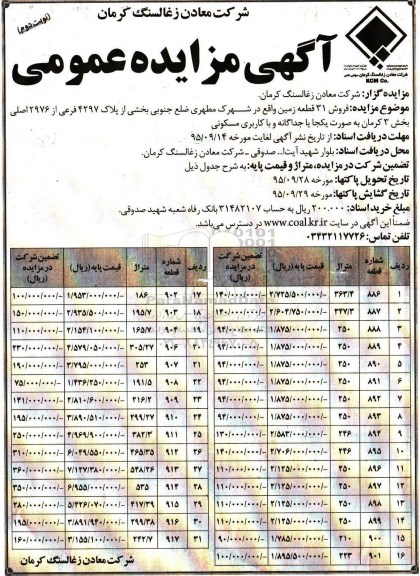 شرکت معادن زغالسنگ کرمان
(نوبت دوم)
آگهی مزایده عمومی
شرکت معادن زغالسنگ کرمان (سهامی خاص)
KCM Co.
مزایده گزار: شرکت معادن زغالسنگ کرمان.
موضوع مزایده: فروش ۳۱ قطعه زمین واقع در شهرک مطهری ضلع جنوبی بخشی از پلاک ۴۲۹۷ فرعی از ۲۹۷۶ اصلی
بخش ۳ کرمان به صورت یکجا یا جداگانه و با کاربری مسکونی
مهلت دریافت اسناد: از تاریخ نشر آگهی لغایت مورخه ۹۵/۰۹/۱۴
محل دریافت اسناد: بلوار شهید آیت‌ا... صدوقی ـ شرکت معادن زغالسنگ کرمان.
تضمین شرکت در مزایده، متراژ و قیمت پایه: به شرح جدول ذیل
تاریخ تحویل پاکتها: مورخه ۹۵/۰۹/۲۸
تاریخ گشایش پاکتها: مورخه ۹۵/۰۹/۲۹
مبلغ خرید اسناد: ۲۰۰۰۰۰ ریال به حساب ۳۱۴۸۲۱۰۷ بانک رفاه شعبه شهید صدوقی.
ضمناً این آگهی در سایت www.coal.kr.ir در دسترس می‌باشد.
تلفن تماس: ۰۳۴۳۲۱۱۷۷۲۶
ردیف شماره قطعه متراژ قیمت پایه (ریال) تضمین شرکت در مزایده (ریال) ردیف شماره قطعه متراژ قیمت پایه (ریال) تضمین شرکت در مزایده (ریال)
۱ ۸۸۶ ۳۶۳/۴ ۲/۷۲۵/۵۰۰/۰۰۰/- ۱۴۰/۰۰۰/۰۰۰/- ۱۷ ۹۰۲ ۱۸۶ ۱/۹۵۳/۰۰۰/۰۰۰/- ۱۰۰/۰۰۰/۰۰۰/-
۲ ۸۸۷ ۳۴۷/۳ ۲/۶۰۴/۷۵۰/۰۰۰/- ۱۴۰/۰۰۰/۰۰۰/- ۱۸ ۹۰۳ ۱۹۵/۷ ۲/۹۳۵/۵۰۰/۰۰۰/- ۱۵۰/۰۰۰/۰۰۰/-
۳ ۸۸۸ ۲۵۰ ۱/۸۷۵/۰۰۰/۰۰۰/- ۹۴/۰۰۰/۰۰۰/- ۱۹ ۹۰۴ ۱۶۵/۷ ۲/۱۵۴/۱۰۰/۰۰۰/- ۱۱۰/۰۰۰/۰۰۰/-
۴ ۸۸۹ ۲۵۰ ۱/۸۷۵/۰۰۰/۰۰۰/- ۹۴/۰۰۰/۰۰۰/- ۲۰ ۹۰۶ ۳۰۵/۲۷ ۴/۵۷۹/۰۵۰/۰۰۰/- ۲۳۰/۰۰۰/۰۰۰/-
۵ ۸۹۰ ۲۵۰ ۱/۸۷۵/۰۰۰/۰۰۰/- ۹۴/۰۰۰/۰۰۰/- ۲۱ ۹۰۷ ۲۵۳ ۳/۷۹۵/۰۰۰/۰۰۰/- ۱۹۰/۰۰۰/۰۰۰/-
۶ ۸۹۱ ۲۵۰ ۱/۸۷۵/۰۰۰/۰۰۰/- ۹۴/۰۰۰/۰۰۰/- ۲۲ ۹۰۸ ۱۹۱/۵ ۱/۴۳۶/۲۵۰/۰۰۰/- ۷۵/۰۰۰/۰۰۰/-
۷ ۸۹۲ ۲۵۰ ۱/۸۷۵/۰۰۰/۰۰۰/- ۹۴/۰۰۰/۰۰۰/- ۲۳ ۹۰۹ ۲۱۶/۲ ۲/۸۱۰/۶۰۰/۰۰۰/- ۱۴۱/۰۰۰/۰۰۰/-
۸ ۸۹۳ ۲۵۰ ۱/۸۷۵/۰۰۰/۰۰۰/- ۹۴/۰۰۰/۰۰۰/- ۲۴ ۹۱۰ ۲۹۹/۲۷ ۳/۸۹۰/۵۱۰/۰۰۰/- ۱۹۵/۰۰۰/۰۰۰/-
۹ ۸۹۴ ۲۴۶ ۲/۵۸۳/۰۰۰/۰۰۰/- ۱۳۰/۰۰۰/۰۰۰/- ۲۵ ۹۱۱ ۳۸۲/۳ ۴/۹۶۹/۹۰۰/۰۰۰/- ۲۵۰/۰۰۰/۰۰۰/-
۱۰ ۸۹۵ ۲۴۶ ۲/۷۰۶/۰۰۰/۰۰۰/- ۱۴۰/۰۰۰/۰۰۰/- ۲۶ ۹۱۲ ۴۶۵/۳۵ ۶/۰۴۹/۵۵۰/۰۰۰/- ۳۱۰/۰۰۰/۰۰۰/-
۱۱ ۸۹۶ ۲۵۰ ۲/۱۲۵/۰۰۰/۰۰۰/- ۱۱۰/۰۰۰/۰۰۰/- ۲۷ ۹۱۳ ۵۴۸/۲۶ ۷/۱۲۷/۳۸۰/۰۰۰/- ۳۶۰/۰۰۰/۰۰۰/-
۱۲ ۸۹۷ ۲۵۰ ۲/۱۲۵/۰۰۰/۰۰۰/- ۱۱۰/۰۰۰/۰۰۰/- ۲۸ ۹۱۴ ۵۳۵ ۶/۹۵۵/۰۰۰/۰۰۰/- ۳۵۰/۰۰۰/۰۰۰/-
۱۳ ۸۹۸ ۲۵۰ ۲/۱۲۵/۰۰۰/۰۰۰/- ۱۱۰/۰۰۰/۰۰۰/- ۲۹ ۹۱۵ ۴۱۷/۳۹ ۵/۴۲۶/۰۷۰/۰۰۰/- ۲۸۰/۰۰۰/۰۰۰/-
۱۴ ۸۹۹ ۲۵۰ ۲/۱۲۵/۰۰۰/۰۰۰/- ۱۱۰/۰۰۰/۰۰۰/- ۳۰ ۹۱۶ ۲۹۹/۳۸ ۳/۸۹۱/۹۴۰/۰۰۰/- ۱۹۵/۰۰۰/۰۰۰/-
۱۵ ۹۰۰ ۲۱۰ ۱/۷۸۵/۰۰۰/۰۰۰/- ۹۰/۰۰۰/۰۰۰/- ۳۱ ۹۱۷ ۲۴۲/۷ ۳/۱۵۵/۱۰۰/۰۰۰/- ۱۶۰/۰۰۰/۰۰۰/-
۱۶ ۹۰۱ ۲۲۳ ۱/۸۹۵/۵۰۰/۰۰۰/- ۱۰۰/۰۰۰/۰۰۰/-
شرکت معادن زغالسنگ کرمان